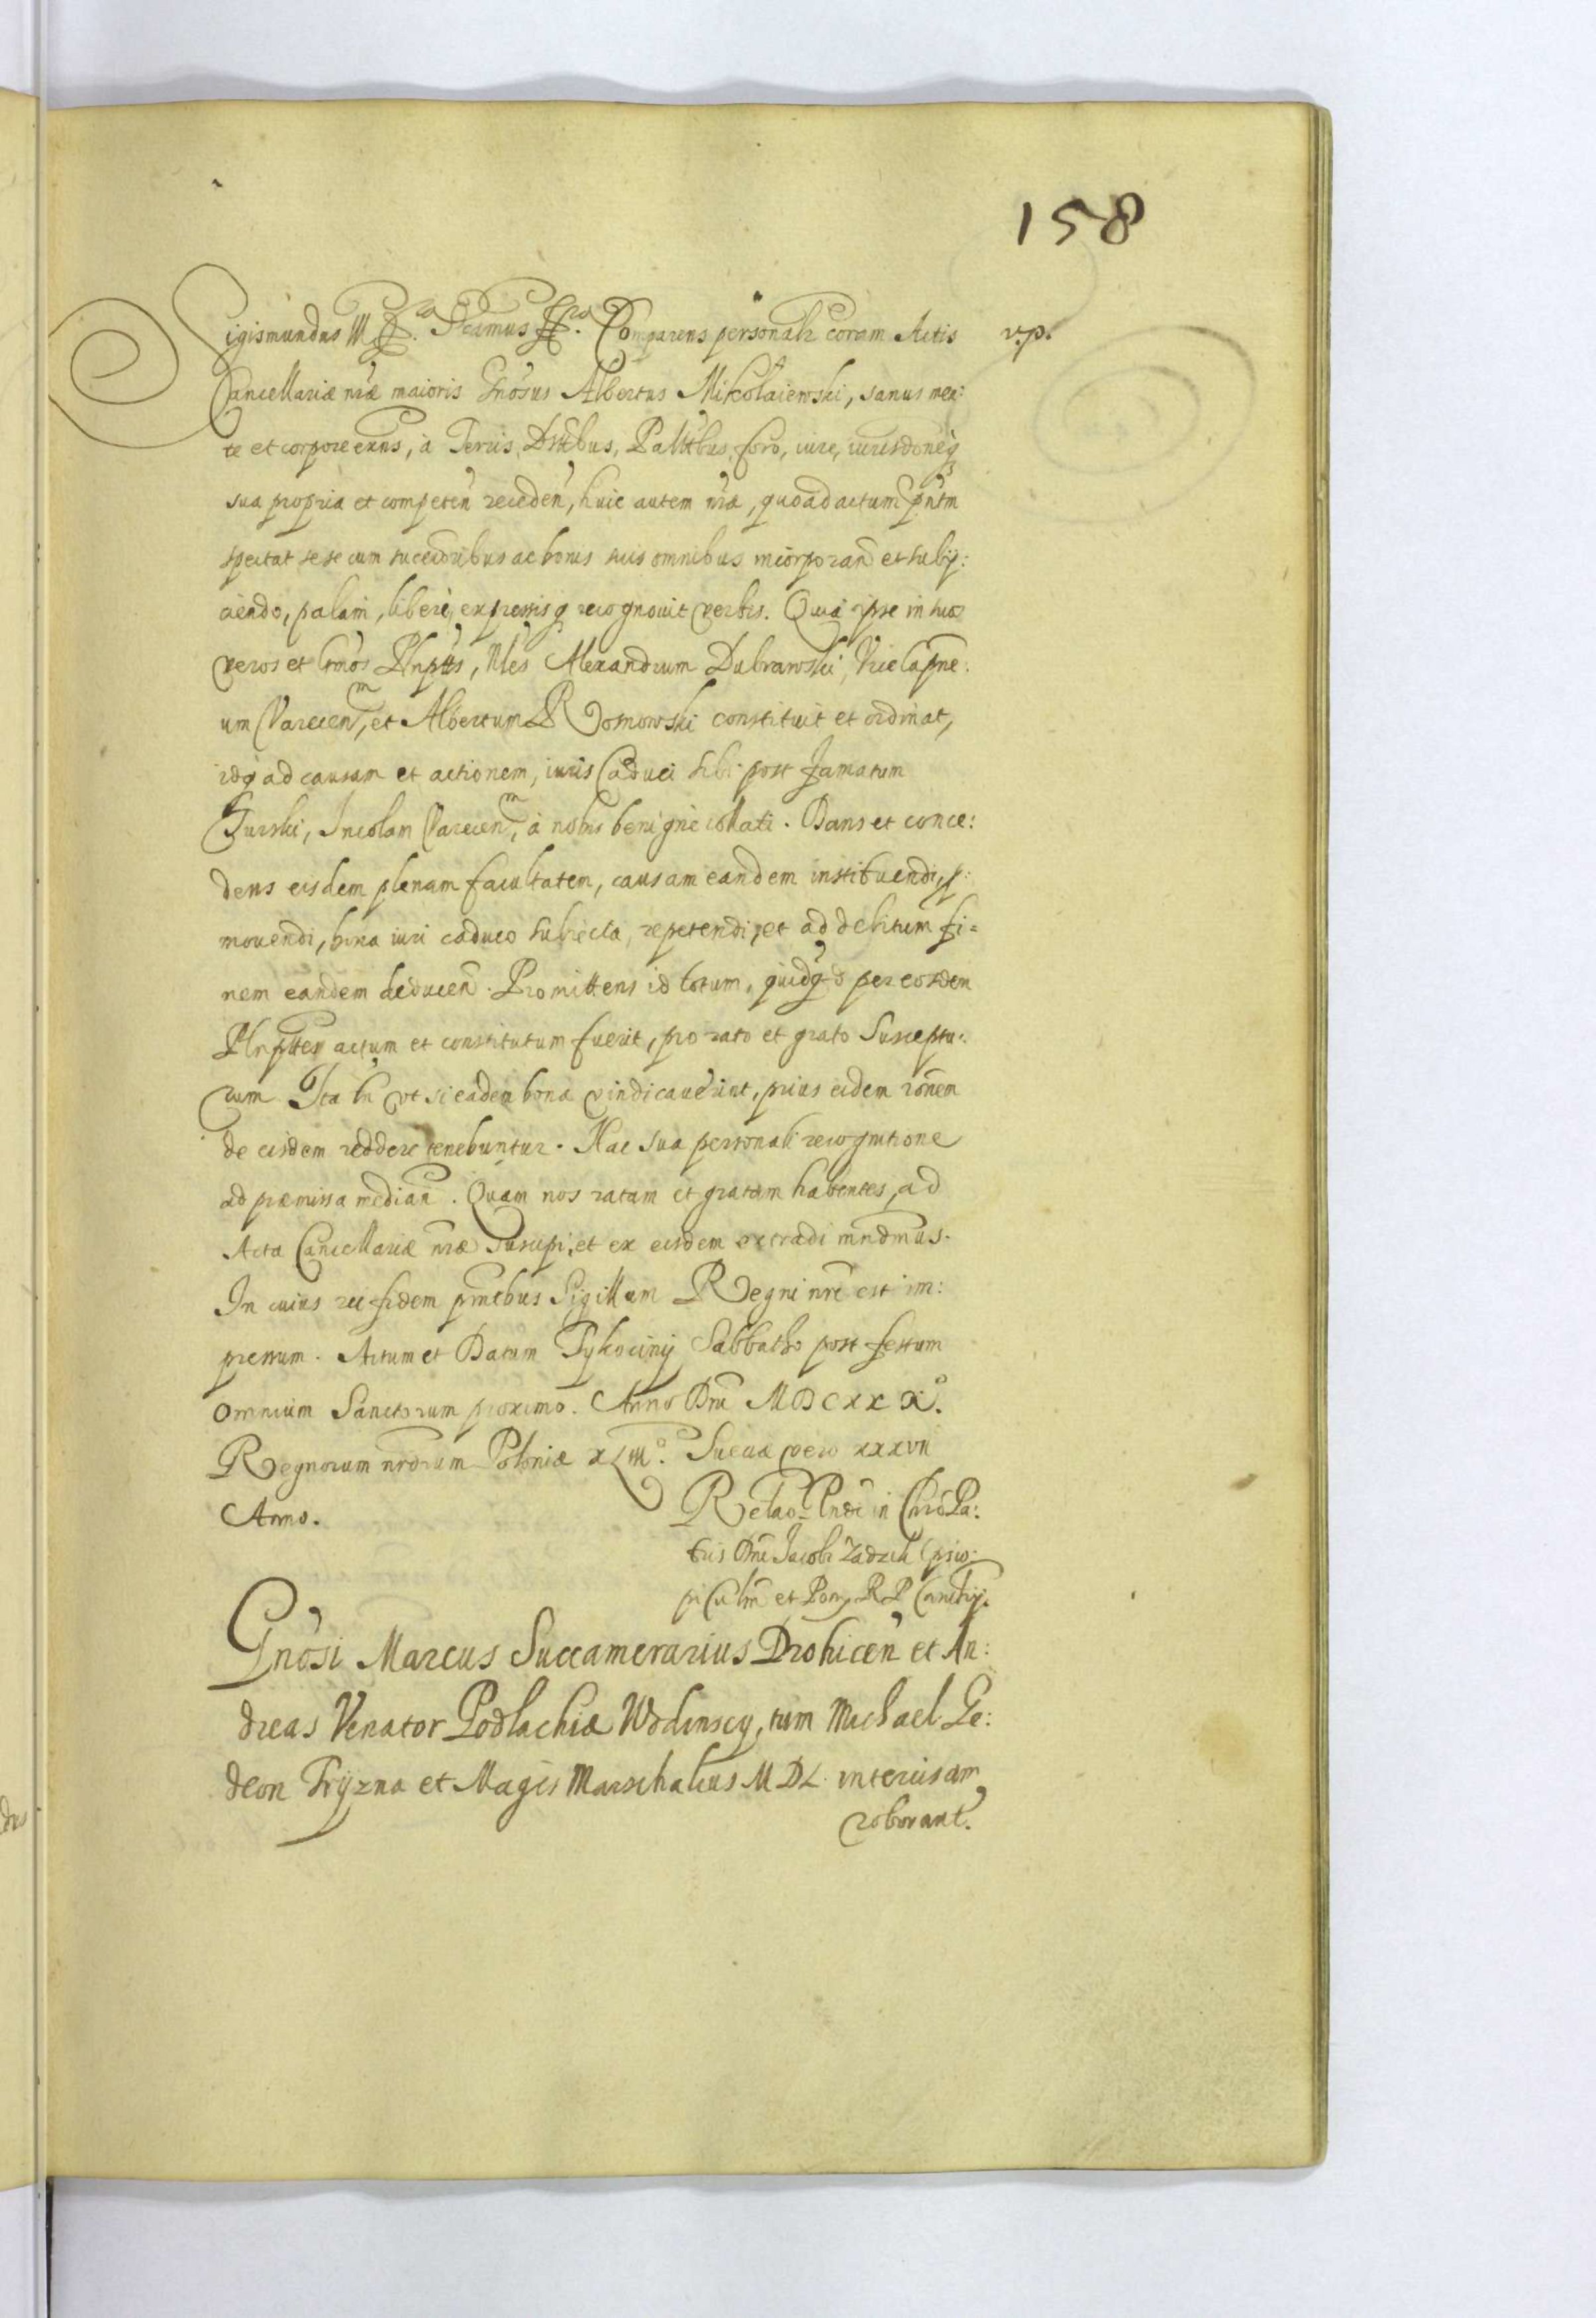 158
Sigismundus III D. gra Scimus &c. Comparens personalr coram Actis v.p.
Cancellariæ nræ maioris Gnosus Albertus Mikołaiewski, sanus men:
te et corpore exns, à Terris, Dstbus, Palttbus, foro, iure, iurisdoneq
sua propria et competen receden, huic autem nræ, quo ad actum pntm
spectat sese cum successoribus ac bonis suis omnibus incorporan et subij:
ciendo, palam, libere, expressisq recognovit verbis. Quia ipse in suos
veros et lrmos Plnptts, Nles Alexandrum Dubrawski, Vice
um Varecen m, et Albertum Rosnowski constituit et ordinat,
idq ad causam et actionem, iuris Caduci sibi post famatum
Gurski, Incolam Varecen m, à nobis benigne collati. Dans et conce:
dens eisdem plenam facultatem, causam eandem instituendi, p:
movendi, bona iuri caduco subiecta, repetendi, et ad debitum fi=
nem eandem deducen. Promittens id totum, quidqd per eosdem
Plnpttes actum et constitutum fuerit, pro rato et grato Susceptu:
rum. Ita tn vt si eadem bona vindicaverint, prius eidem ronem
de eisdem reddere tenebuntur. Hac sua personali recognitione
ad præmissa median. Quam nos ratam et gratam habentes, ad
Acta Cancellariæ nræ suscipi, et ex eisdem extradi mndmus.
In cuius rei fidem pntibus Sigillum Regni nri est im:
pressum. Actum et Datum Tykocinij Sabbatho post festum
omnium Sanctorum proximo. Anno Dni MDCXXX°.
Regnorum nrorum Poloniæ XLIII°. Sueciæ vero xxxvii
Anno. Relao Rndi in Chro Pa:
tris Dni Jacobi Zadzik Episco:
pi Culm et Pom, R.P. Cancrij.
Gnosi Marcus Succamerarius Drohicen et An:
dreas Venator Podlachiæ Wodinscy, tum Michael Ge:
deon Tryzna et Magis Marschalcus MDL. intercisam
roborant.